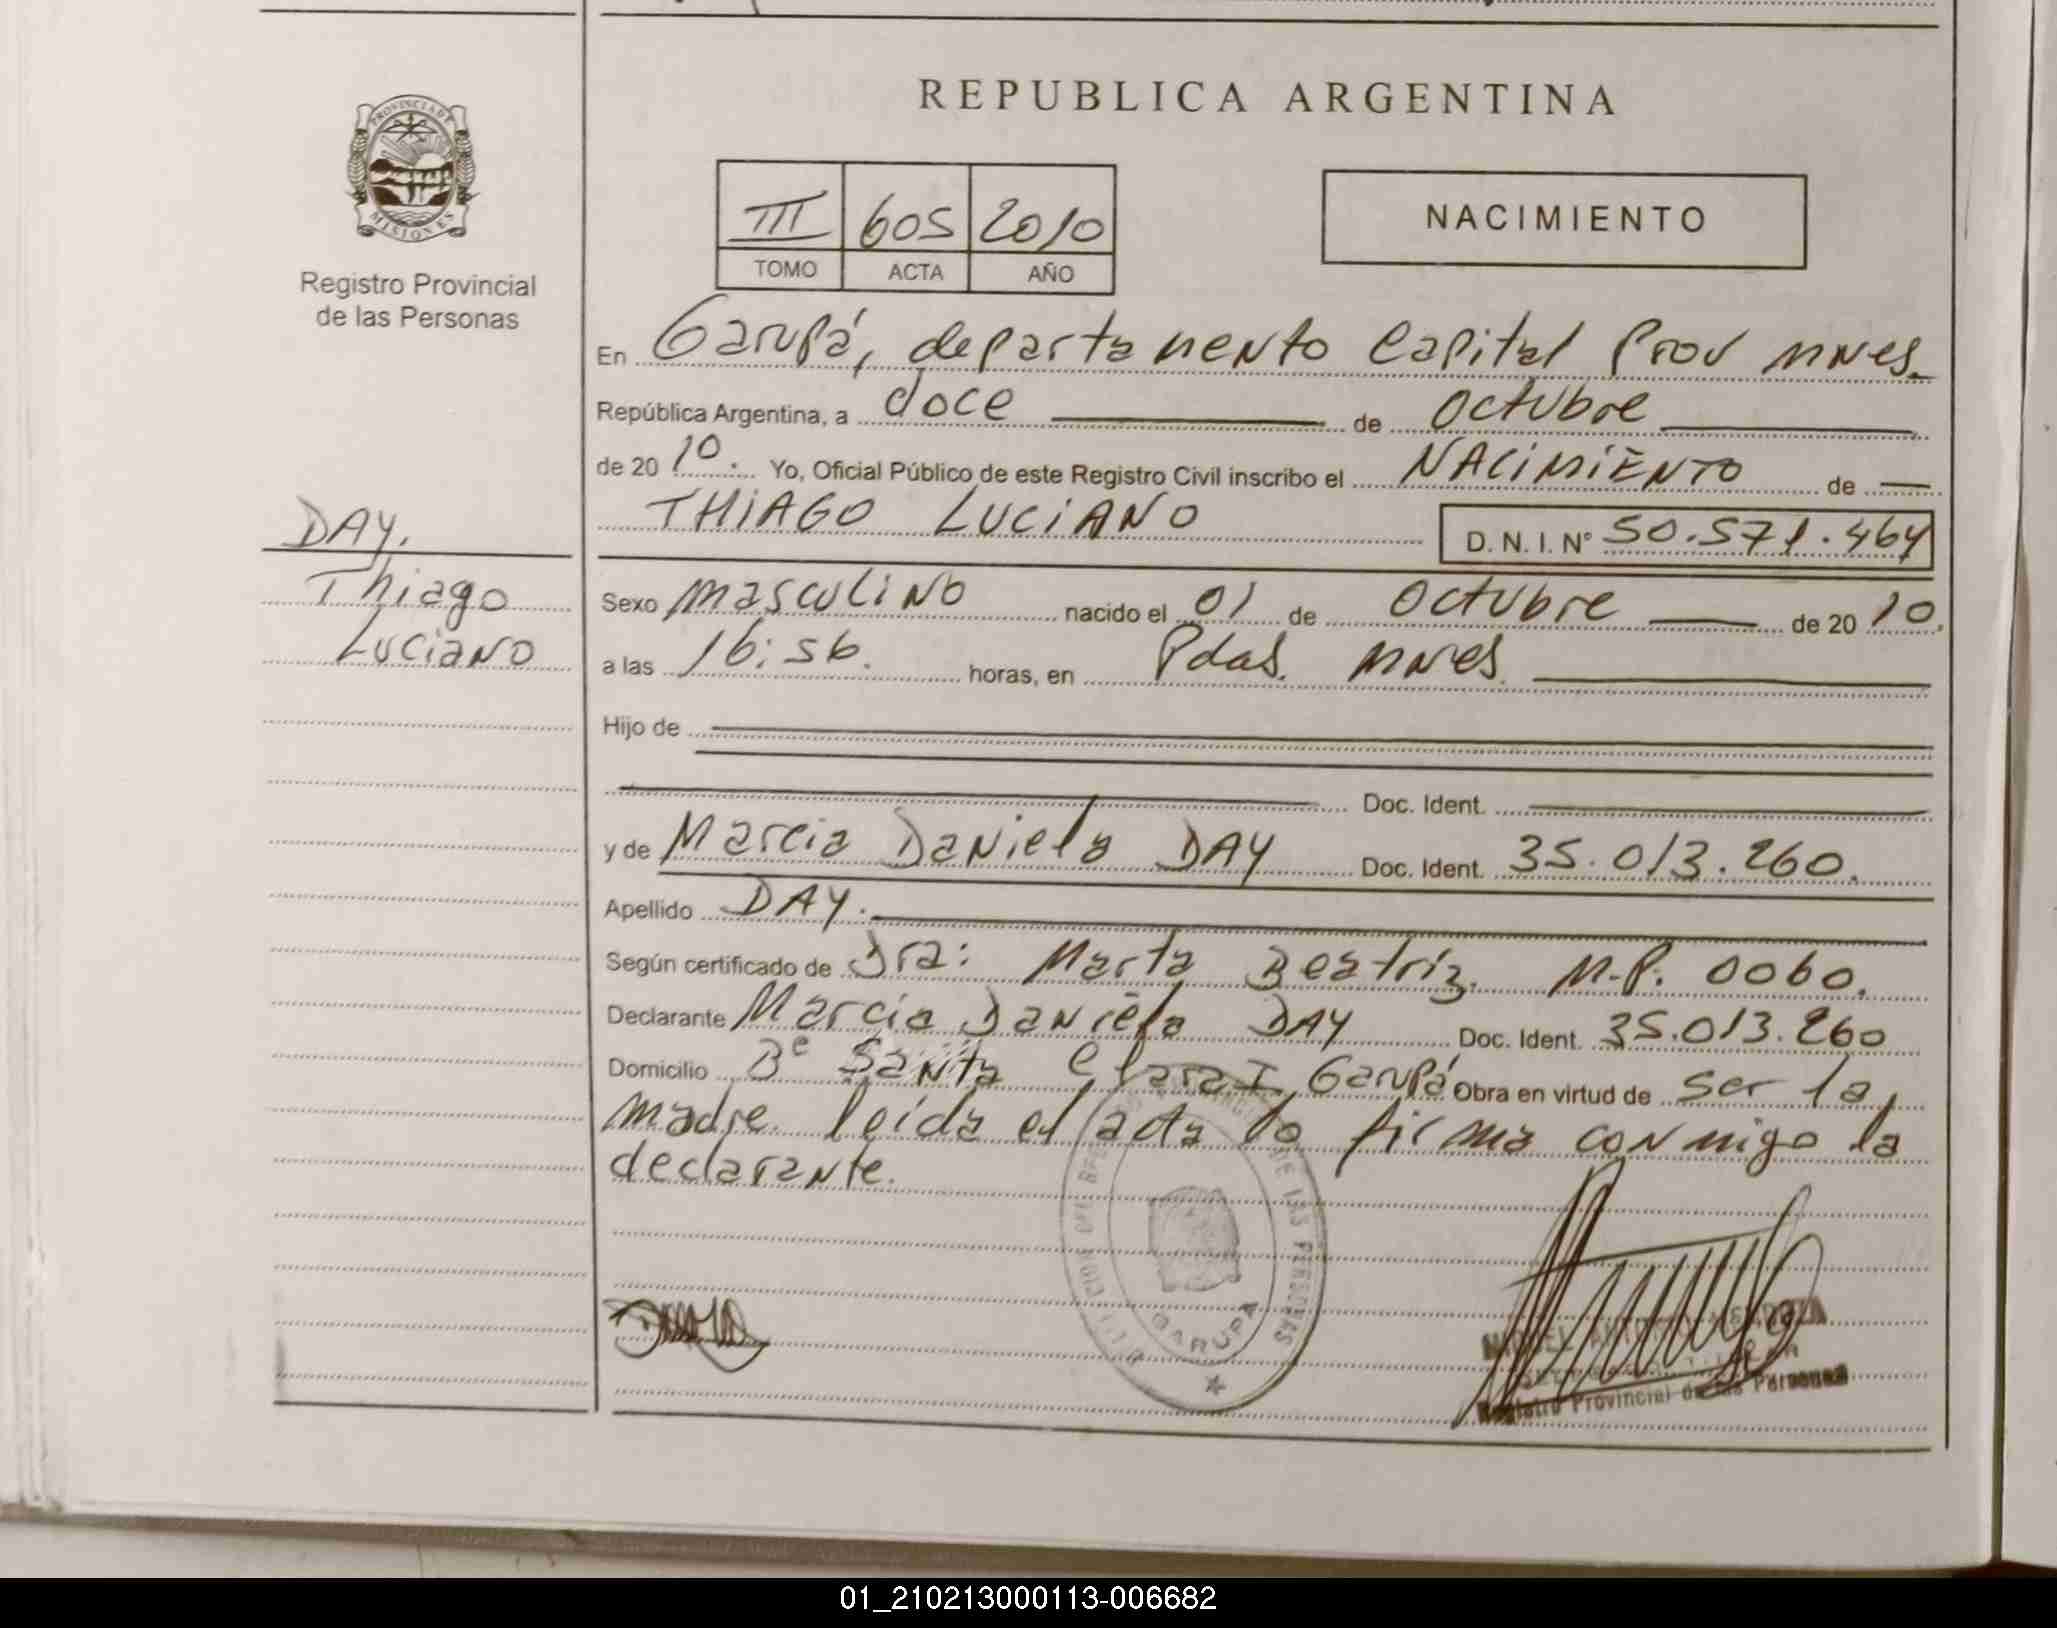 REPUBLICA ARGENTINA
PROVINCIA DE
MISIONES
Registro Provincial
de las Personas
III 605 2010
TOMO ACTA AÑO
NACIMIENTO
En Garupá, departamento Capital Prov mnes.
República Argentina, a doce de octubre
de 2010. Yo, Oficial Público de este Registro Civil inscribo el NACIMIENTO de
THIAGO LUCIANO D. N. I. N° 50.571.464
DAY.
Thiago
Luciano
Sexo masculino nacido el 01 de octubre de 2010.
a las 16:56. horas, en Pdas. mnes.
Hijo de
Doc. Ident.
y de Marcia Daniela DAY Doc. Ident. 35.013.260.
Apellido DAY.
Según certificado de Dra: Marta Beatriz. M.P. 0060.
Declarante Marcia Daniela DAY Doc. Ident. 35.013.260
Domicilio B° Santa Clara I Garupá Obra en virtud de ser la
madre. leída el acta lo firma conmigo la
declarante.
DE LAS PERSONAS
GARUPA
Registro Provincial de las Personas
01_210213000113-006682